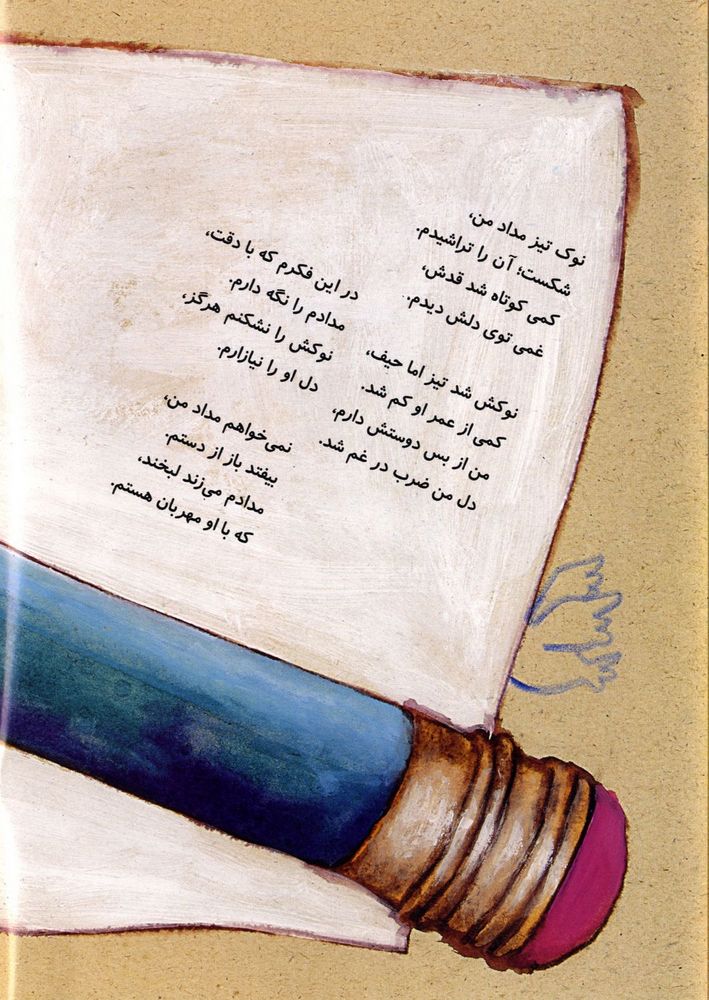 نوک تیز مداد من،
شکست؛ آن را تراشیدم.
کمی کوتاه شد قدش،
غمی توی دلش دیدم.
نوکش شد تیز اما حیف،
کمی از عمر او کم شد.
من از بس دوستش دارم،
دل من ضرب در غم شد.
در این فکرم که با دقت،
مدادم را نگه دارم.
نوکش را نشکنم هرگز،
دل او را نیازارم.
نمی‌خواهم مداد من،
بیفتد باز از دستم.
مدادم می‌زند لبخند،
که با او مهربان هستم.